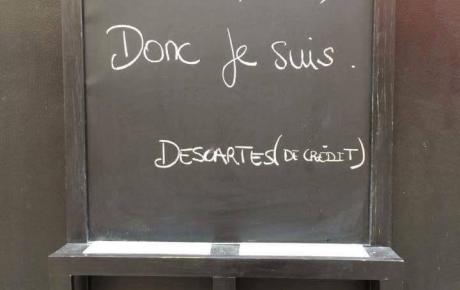 Donc je suis.
DESCARTES (DE CRÉDIT)